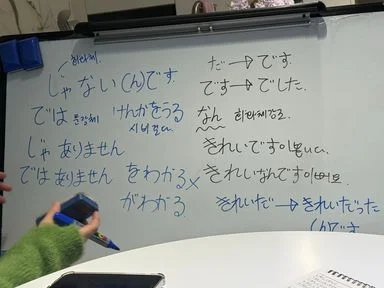 회화체.
じゃない(ん)です
では 문장체
けんかをうる
시비걸다.
じゃありません
ではありません
をわかる×
がわかる
だ→です.
です→でした.
なん 회화체강조.
きれいですㅇ
きれいなんですㅇ
きれいだ→きれいだった
(んです